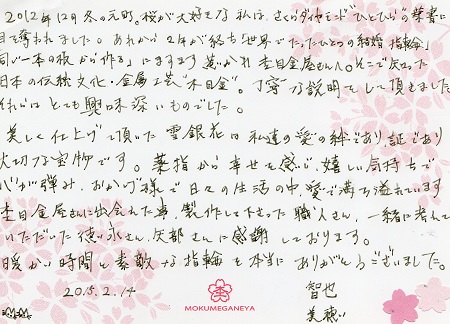 2012年12月 冬の元町。桜が大好きな私は、さくらダイヤモンド"ひとひら"の葉書に
目を奪われました。あれから2年が経ち「世界でたったひとつの結婚指輪」
同じ一本の板から作る」にますます惹かれ杢目金屋さんへ。そこで出会った
日本の伝統文化・金属工芸"木目金"。丁寧な説明をして頂きました。
それはとても興味深いものでした。
美しく仕上げて頂いた雪銀花は私達の愛の絆であり証であり
大切な宝物です。薬指から幸せを感じ、嬉しい気持ちで
心が弾み、おかげ様で日々の生活の中愛で満ち溢れています
杢目金屋さんに出会えた事、製作して下さった職人さん、一緒に考えて
いただいた徳永さん、矢部さんに感謝しております。
暖かい時間と素敵な指輪を本当にありがとうございました。
2015.2.14
智也
美穂
MOKUMEGANEYA